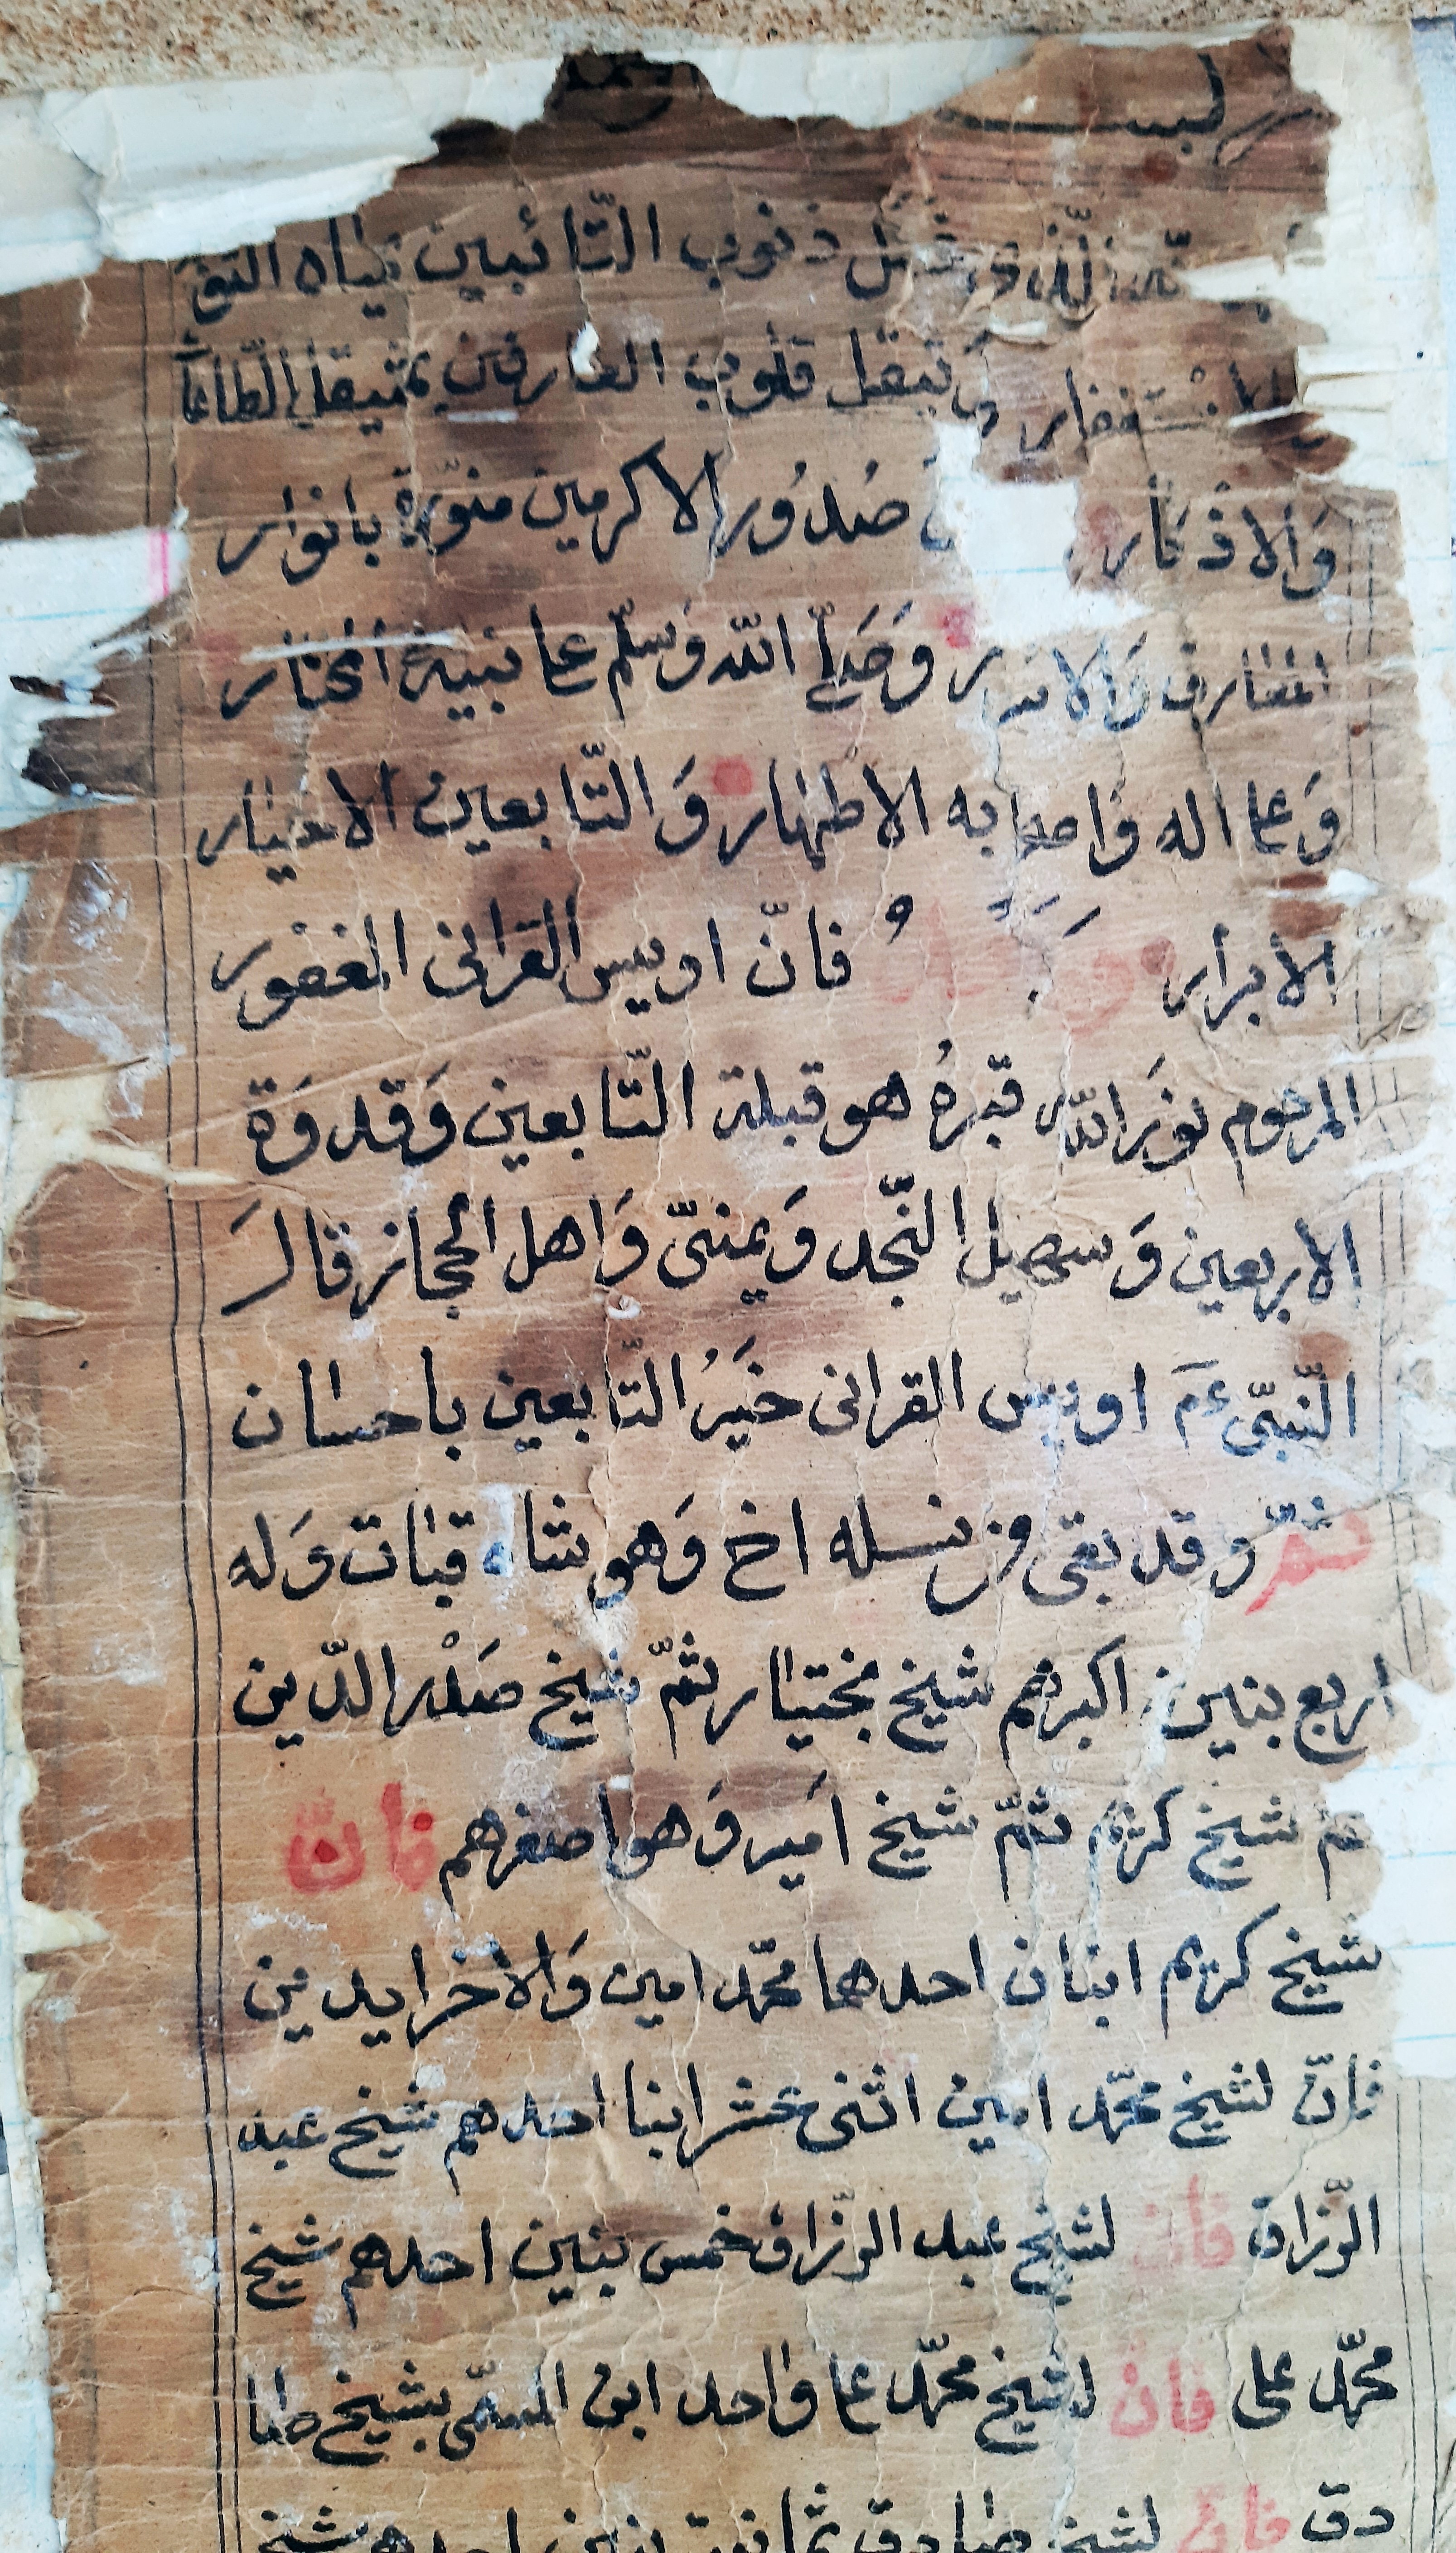 الّذى غسل ذنوب التّائبين بمياه
الاستغفار قلوب العارفين
والاذكار صُدُور الاكرمين منوّرة بانوار
المعارف وَالاسر ر وَصَلّى الله وَسلّم على نبيه المختار
وَعلى اله وَاصحابه الاطهار وَالتّابعين الاخيار
الابرار فانّ اويس القرانى الغفور
المرحوم نوّرَ الله قبرهُ هو قبلة التّابعين وَقدوَة
الاربعين وَسهيل النّجد وَيمنىّ وَاهل الحجاز قالَ
النّبىّ عمَ اويس القرانى خَيرُ التّابعين باحسان
ثمّ وقد بقى من نسله اخ وَهو شاه قبات وَله
اربع بنين اكبرهم شيخ مختيار ثمّ شيخ صَدْر الدّين
ثمّ شيخ كريم ثمّ شيخ اَمير وَهو اصغرهم فانّ
شيخ كريم ابنان احدهما محمّد امين وَالاخر ايدين
فانّ لشيخ محمّد امين اثنى عشر ابنا احدهم شيخ عبد
الرّزاق فانّ لشيخ عبد الرّزاق خمس بنين احدهم شيخ
محمّد على فانّ لشيخ محمّد على واحد ابن المسمّى بشيخ صا
دق فانّ لشيخ صادق ثمانية بنين احدهم شيخ